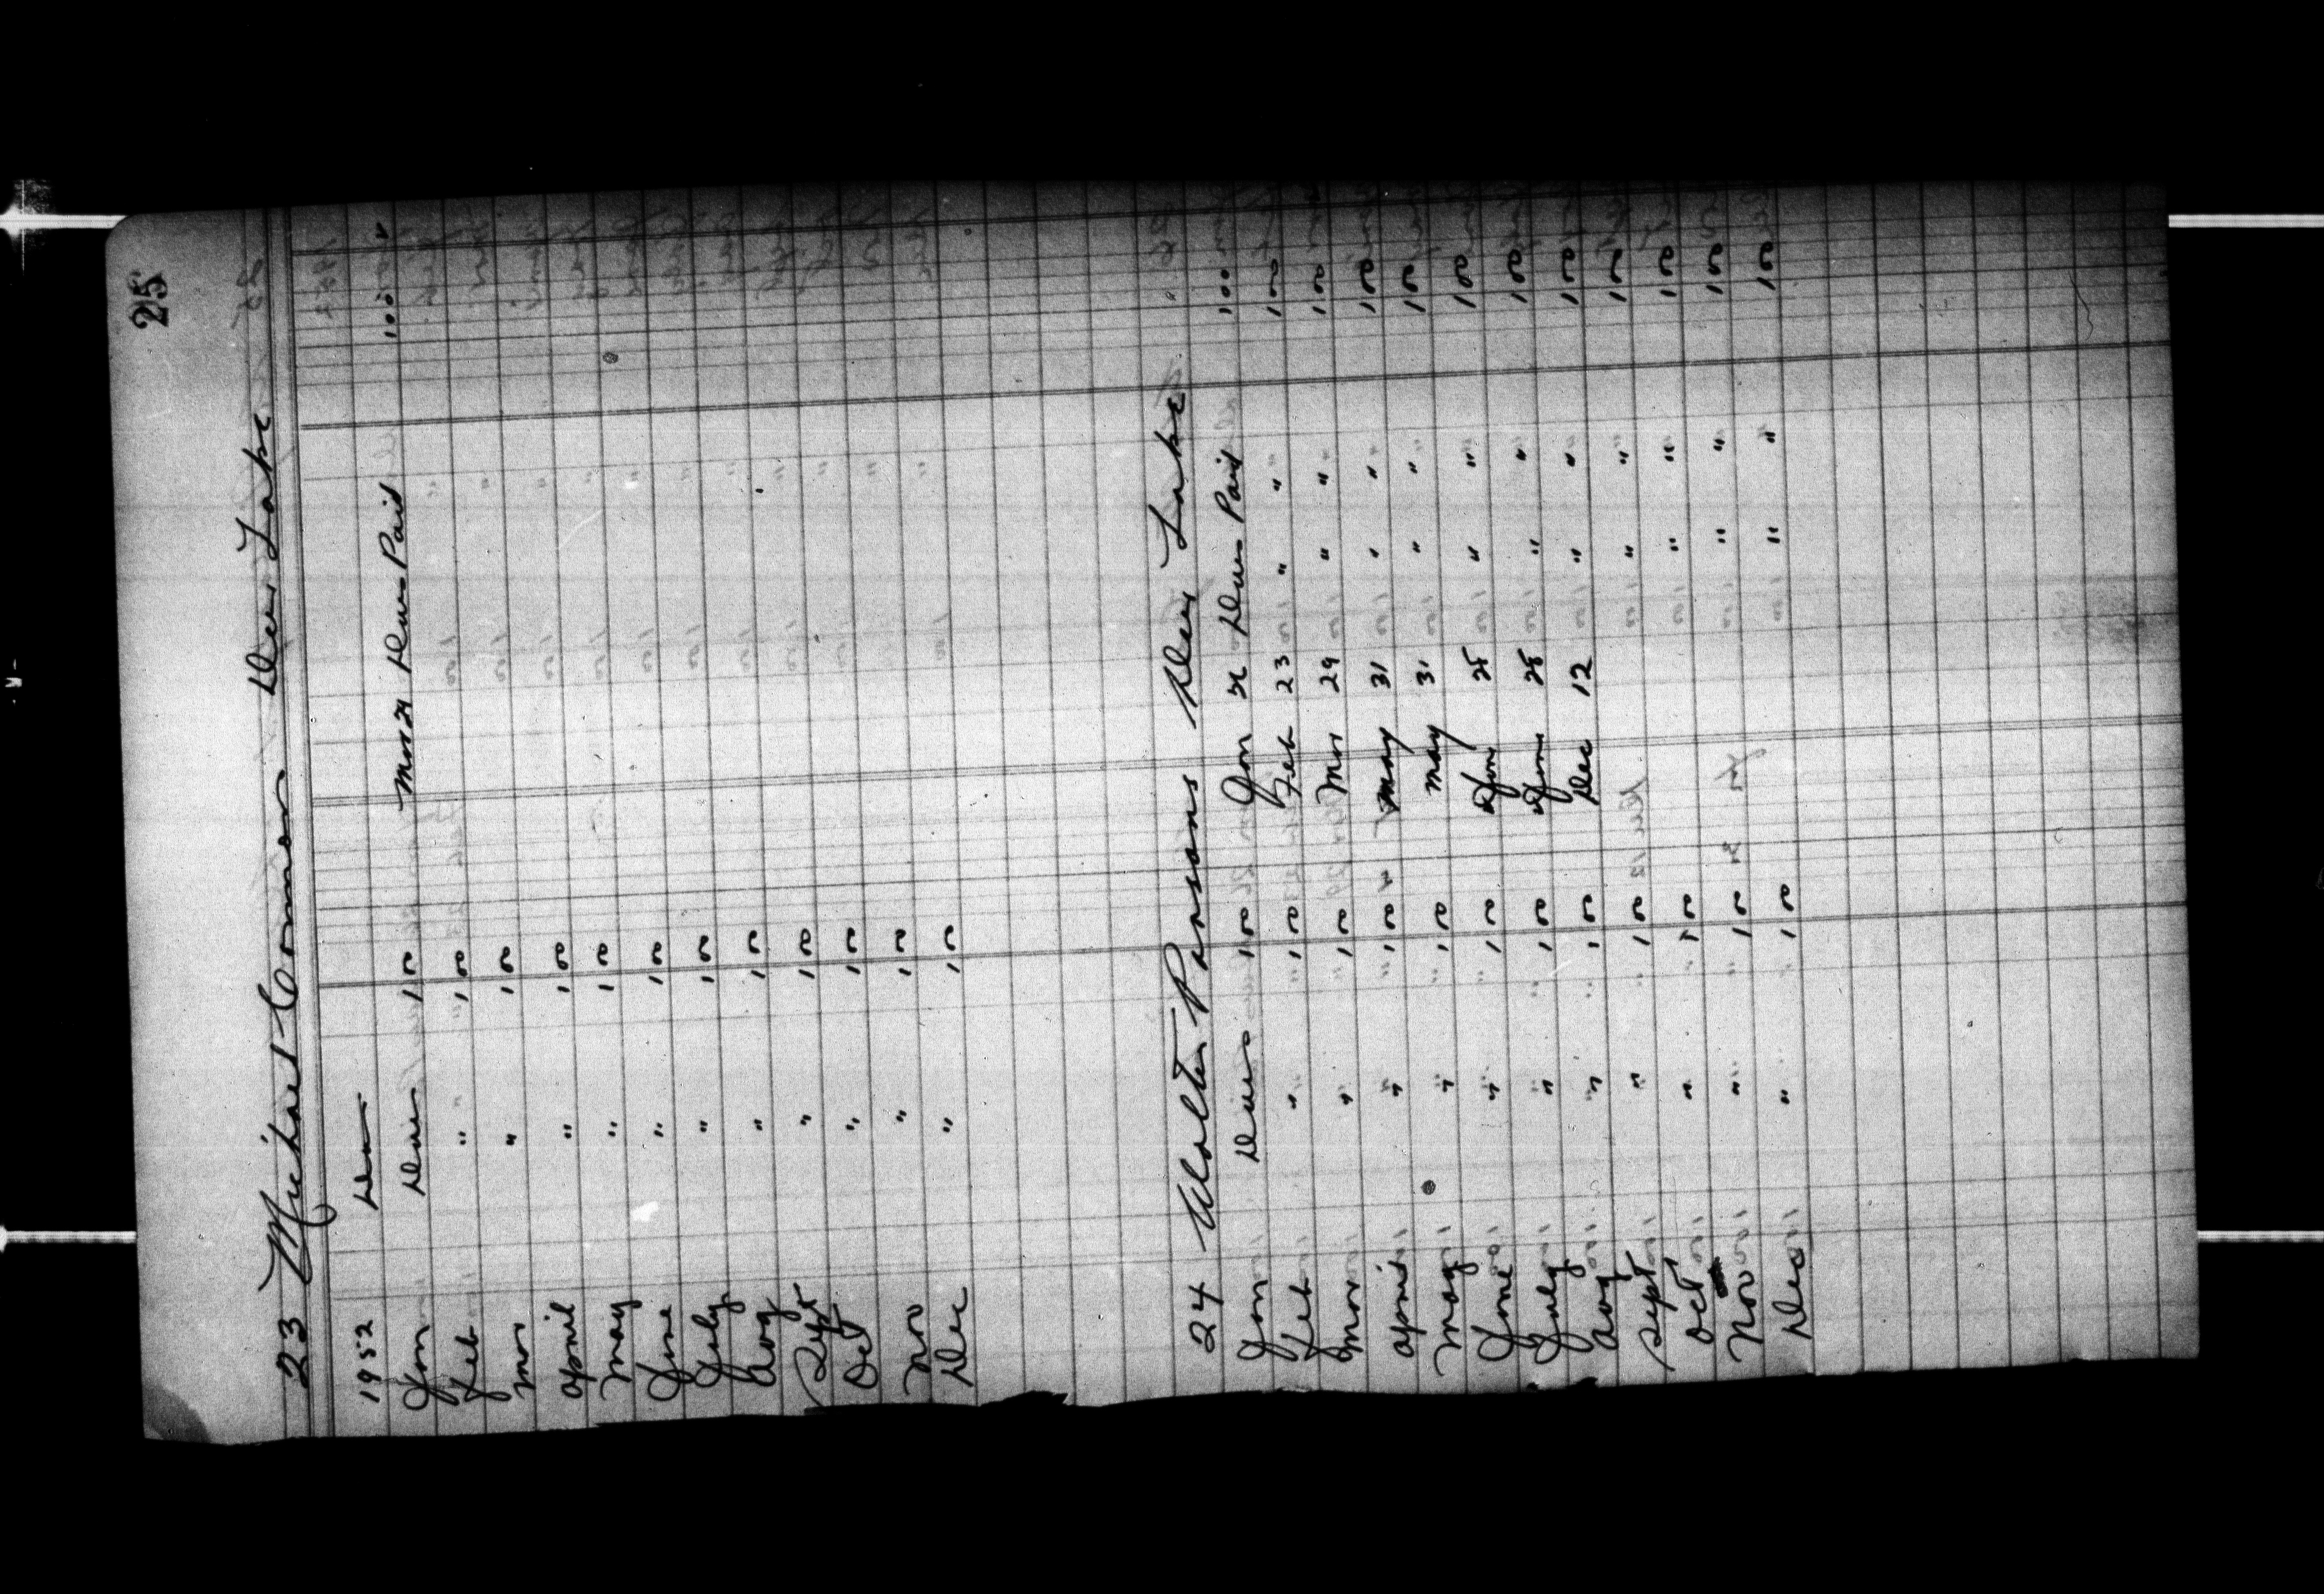 25
23 Michael Connors Deer Lake
1952 Dues
Jan Dues 1 00 Mar 29 Dues Paid 1 00
Feb " 1 00
Mar " 1 00
April " 1 00
May " 1 00
June " 1 00
July " 1 00
Aug " 1 00
Sept " 1 00
Oct " 1 00
Nov " 1 00
Dec " 1 00
24 Walter Parsons Deer Lake
Jan Dues 1 00 Jan 26 Dues Paid 1 00
Feb " 1 00 Feb 23 " " 1 00
Mar " 1 00 Mar 29 " " 1 00
April " 1 00 May 31 " " 1 00
May " 1 00 May 31 " " 1 00
June " 1 00 June 28 " " 1 00
July " 1 00 June 28 " " 1 00
Aug " 1 00 Dec 12 " " 1 00
Sept " 1 00 " " 1 00
Oct " 1 00 " " 1 00
Nov " 1 00 " " 1 00
Dec " 1 00 " " 1 00